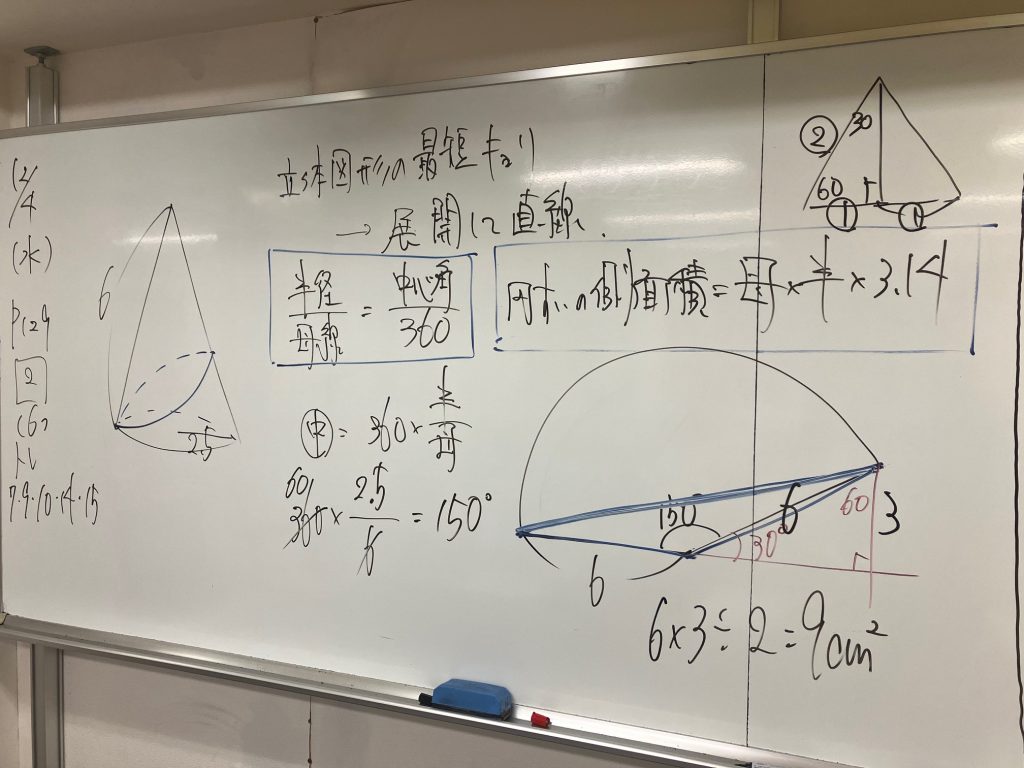 12/4
(水)
P129
2
(6)
トレ
7.9.10.14.15
6
2.5
立体図形の最短キョリ
→ 展開して直線.
半径/母線 = 中心角/360
円すいの側面積=母×半×3.14
㊥= 360×半/母
60
360×2.5/6=150°
② 30
60
① ①
150 6 60 3
30°
6
6×3÷2=9cm²